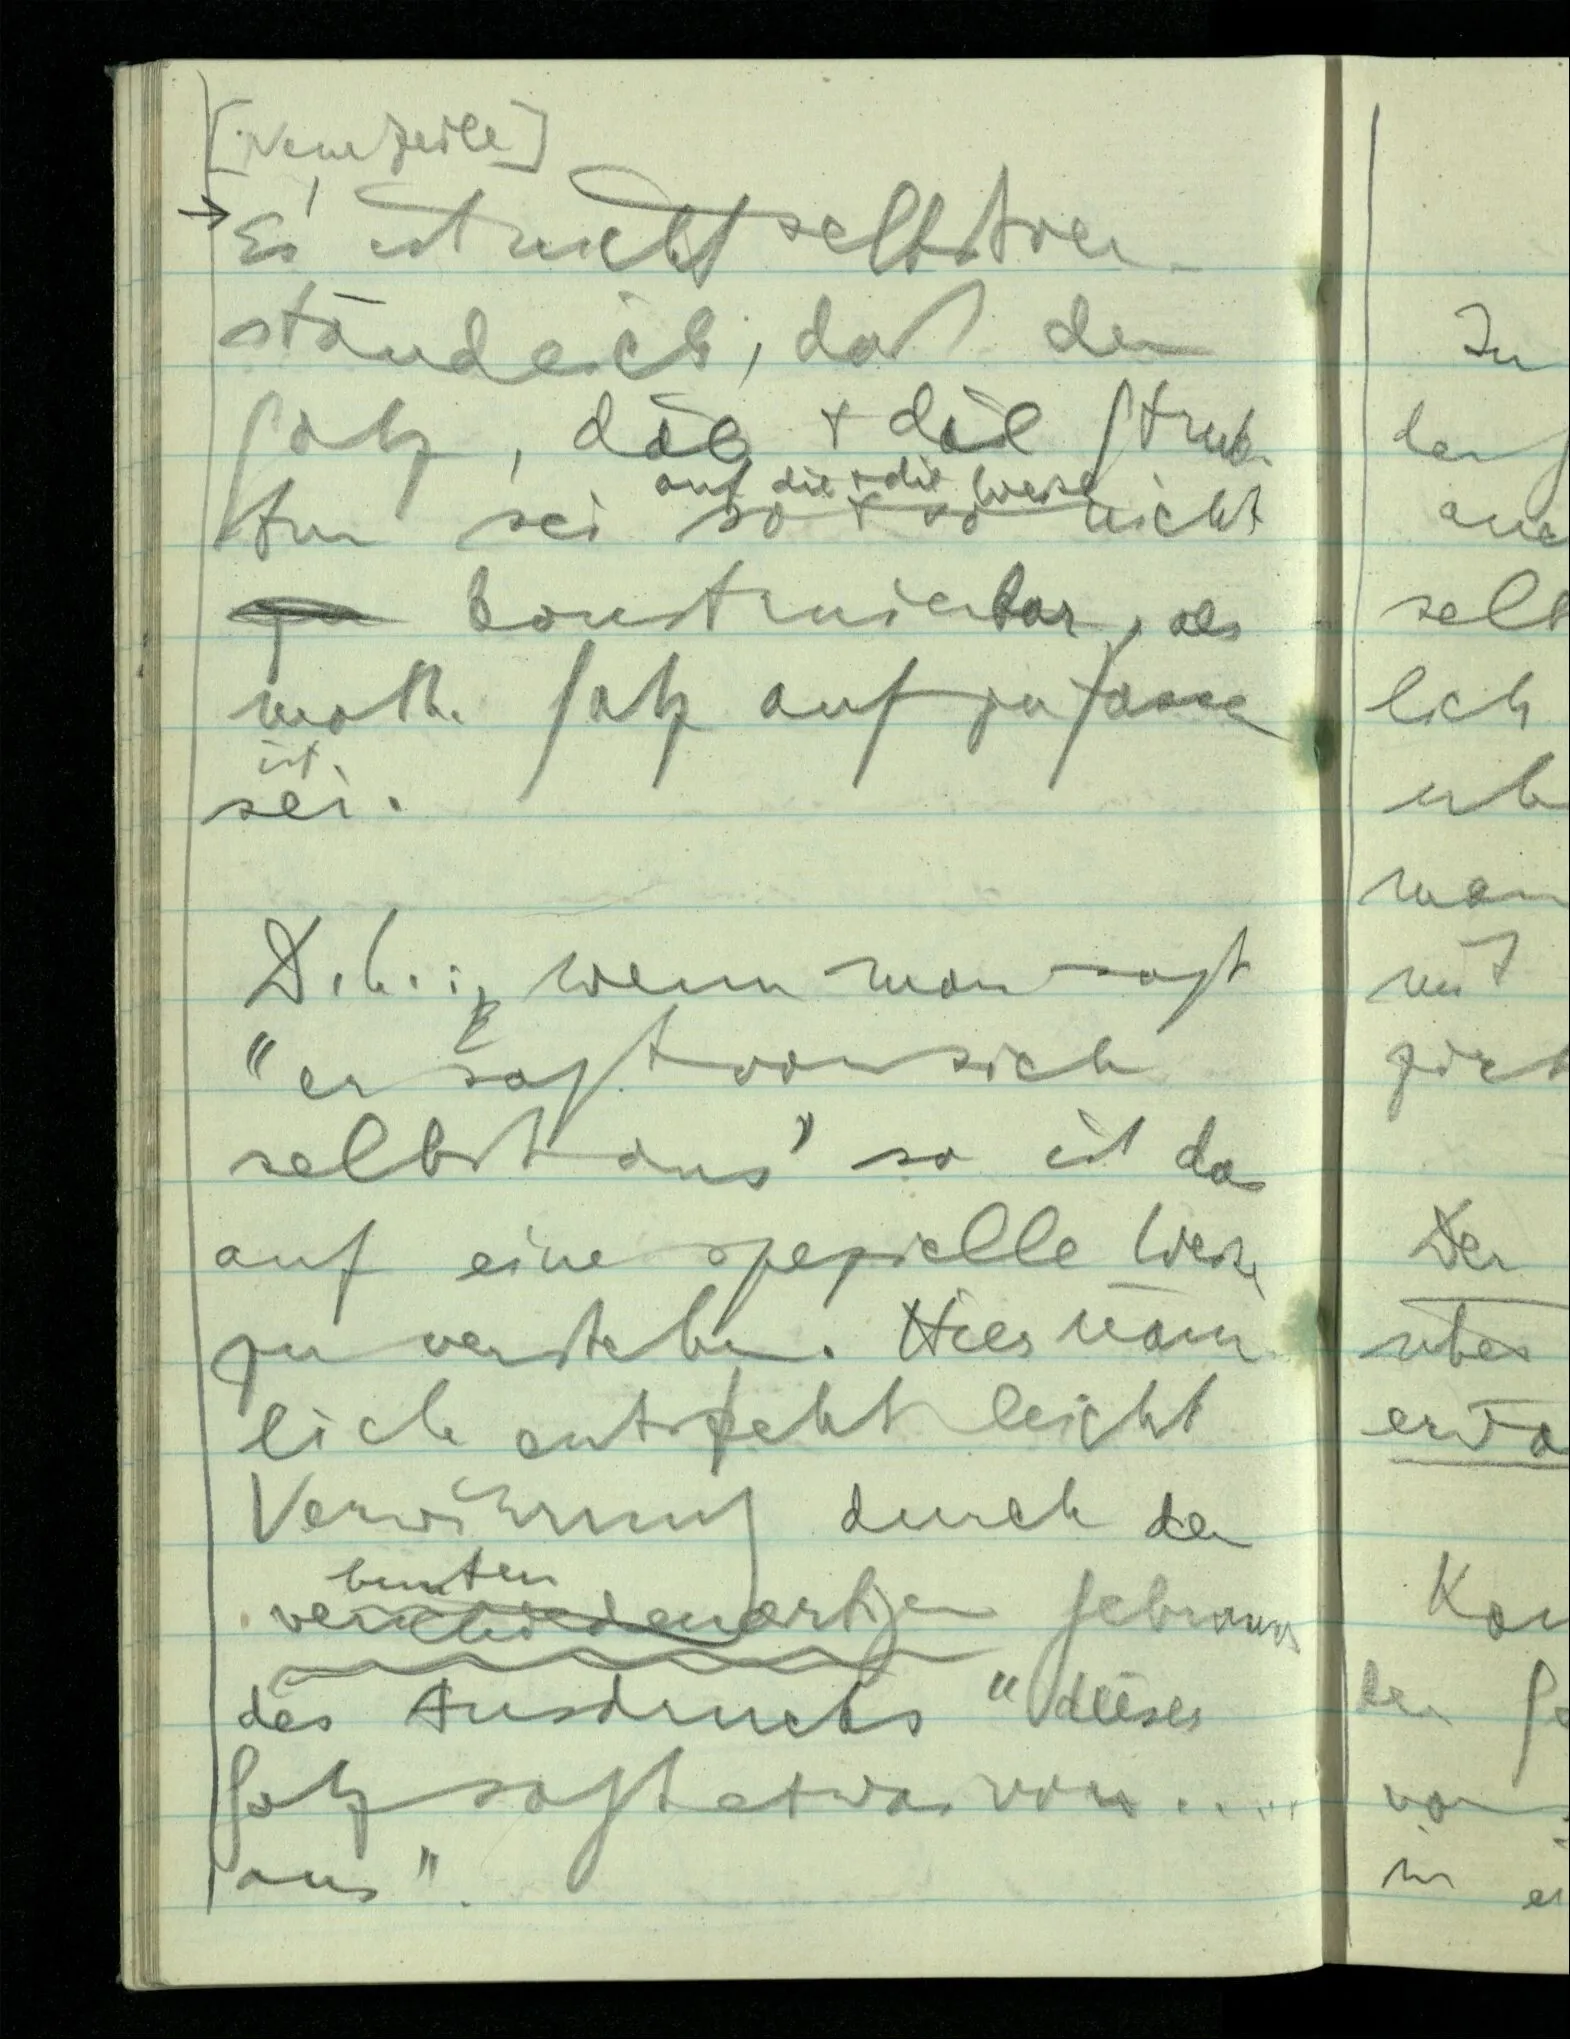 [Neue Zeile]
→ Es ist nicht selbstver-
ständlich, daß der
Satz, die & die Struk-
auf die & die Weise
tur sei so & so nicht
konstruierbar, als
math. Satz aufzufassen
ist
sei.
D.h.: wenn man sagt
"er sagt von sich
selbst aus" so ist das
auf eine spezielle Weise
zu verstehen. Hier näm-
lich entsteht leicht
Verwirrung durch den
bunten
verschiedenartigen Gebrauch
des Ausdrucks "dieser
Satz sagt etwas von ....
aus".
In
der
auc
selb
lich
man
mit
Der
über
Kon
von
in